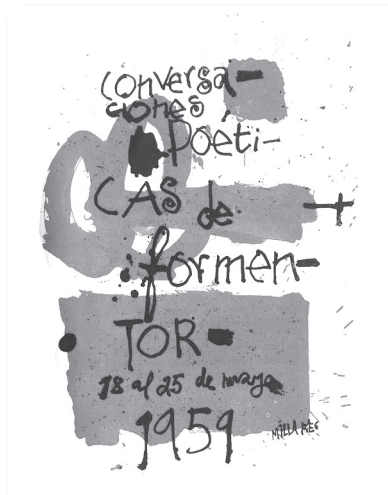 conversa-
ciones
Poeti-
CAS de
formen-
TOR-
18 al 25 de mayo
1959
MILLARES